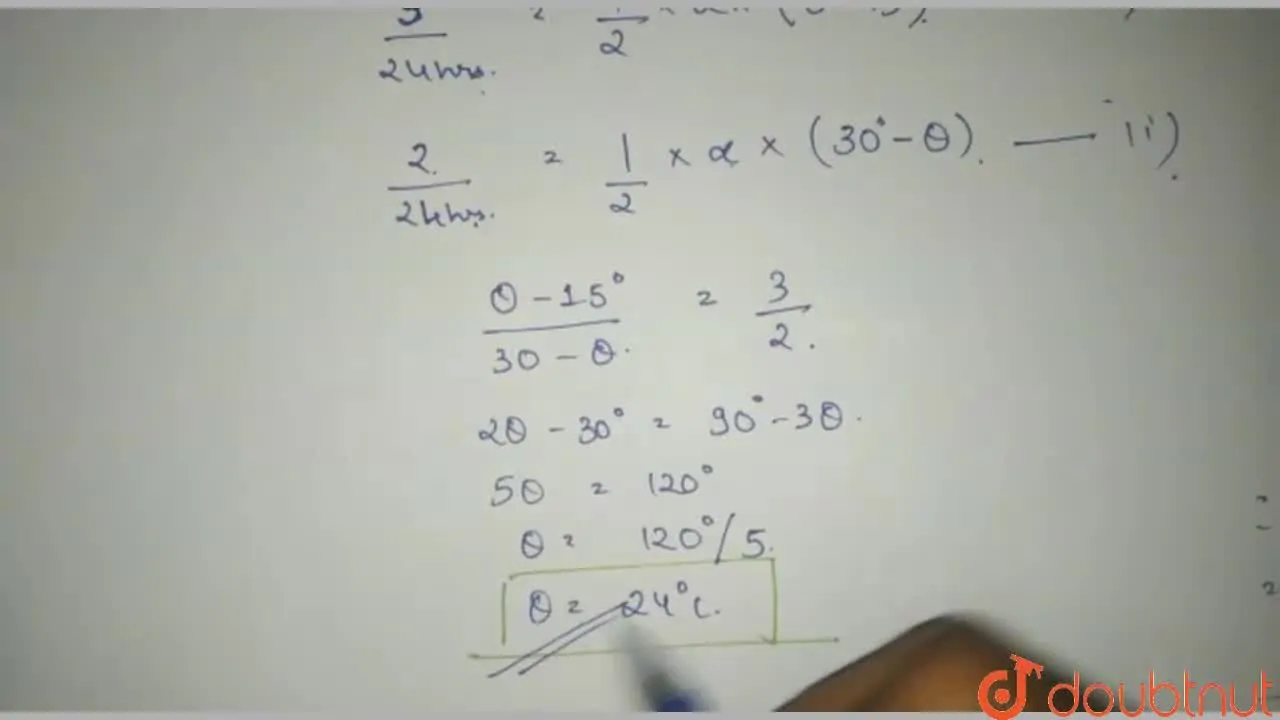 24hrs. = 1/2
2/24hrs. = 1/2 × α × (30° - θ). — ii)
θ - 15°/30 - θ. = 3/2.
2θ - 30° = 90° - 3θ.
5θ = 120°
θ = 120°/5.
θ = 24°c.
doubtnut